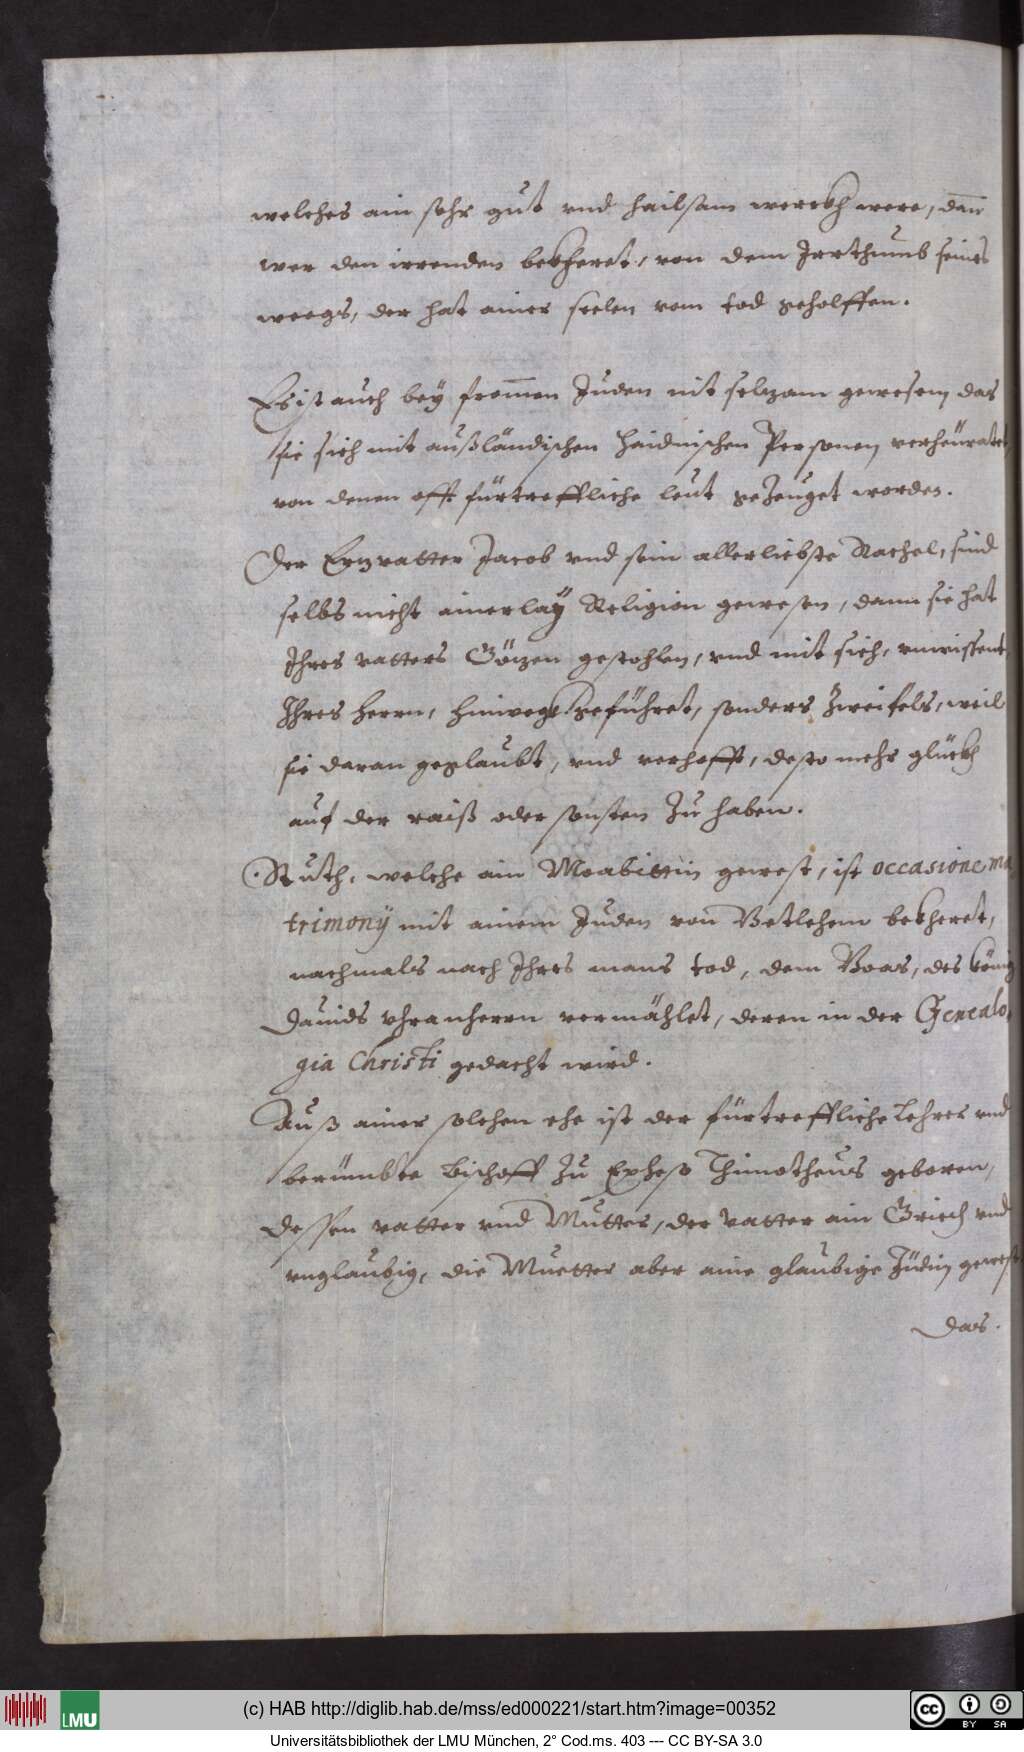 welches ain sehr gut vnd hailsam werckh were, dan̄
wer den irrenden bekheret, von dem Irrthumb seines
weegs, der hat ainer seelen vom tod geholffen.
Es ist auch bey from̄en Juden nit selzam gewesen, das
sie sich mit außländischen haidnischen Personen verheüratet,
von denen offt fürtreffliche leut gezeuget worden.
Der Erzvatter Jacob vnd sein allerliebste Rachel, sind
selbs nicht ainerlaÿ Religion gewesen, dann sie hat
Ihres vatters Gözen gestohlen, vnd mit sich, vnwissent
Ihres herrn, hinweg geführet, sonders zweifels, weil
sie daran geglaubt, vnd verhofft, desto mehr glückh
auf der raiß oder sonsten zu haben.
Ruth, welche ain Moabittin gewest, ist occasione ma
trimonÿ mit ainem Juden von Betlehem bekheret,
nachmals nach Ihres mans tod, dem Boas, des König
Dauids vhranherrn vermählet, deren in der Genealo,
gia Christi gedacht wird.
Auß ainer solchen ehe ist der fürtreffliche Lehrer vnd
berümbte Bischoff zu Epheso Thimotheus geboren,
dessen vatter vnd Mutter, der vatter ain Griech vnd
vnglaubig, die Muetter aber aine glaubige Jüdin gewest
Das.
(c) HAB http://diglib.hab.de/mss/ed000221/start.htm?image=00352
LMU
CC BY SA
Universitätsbibliothek der LMU München, 2° Cod.ms. 403 --- CC BY-SA 3.0